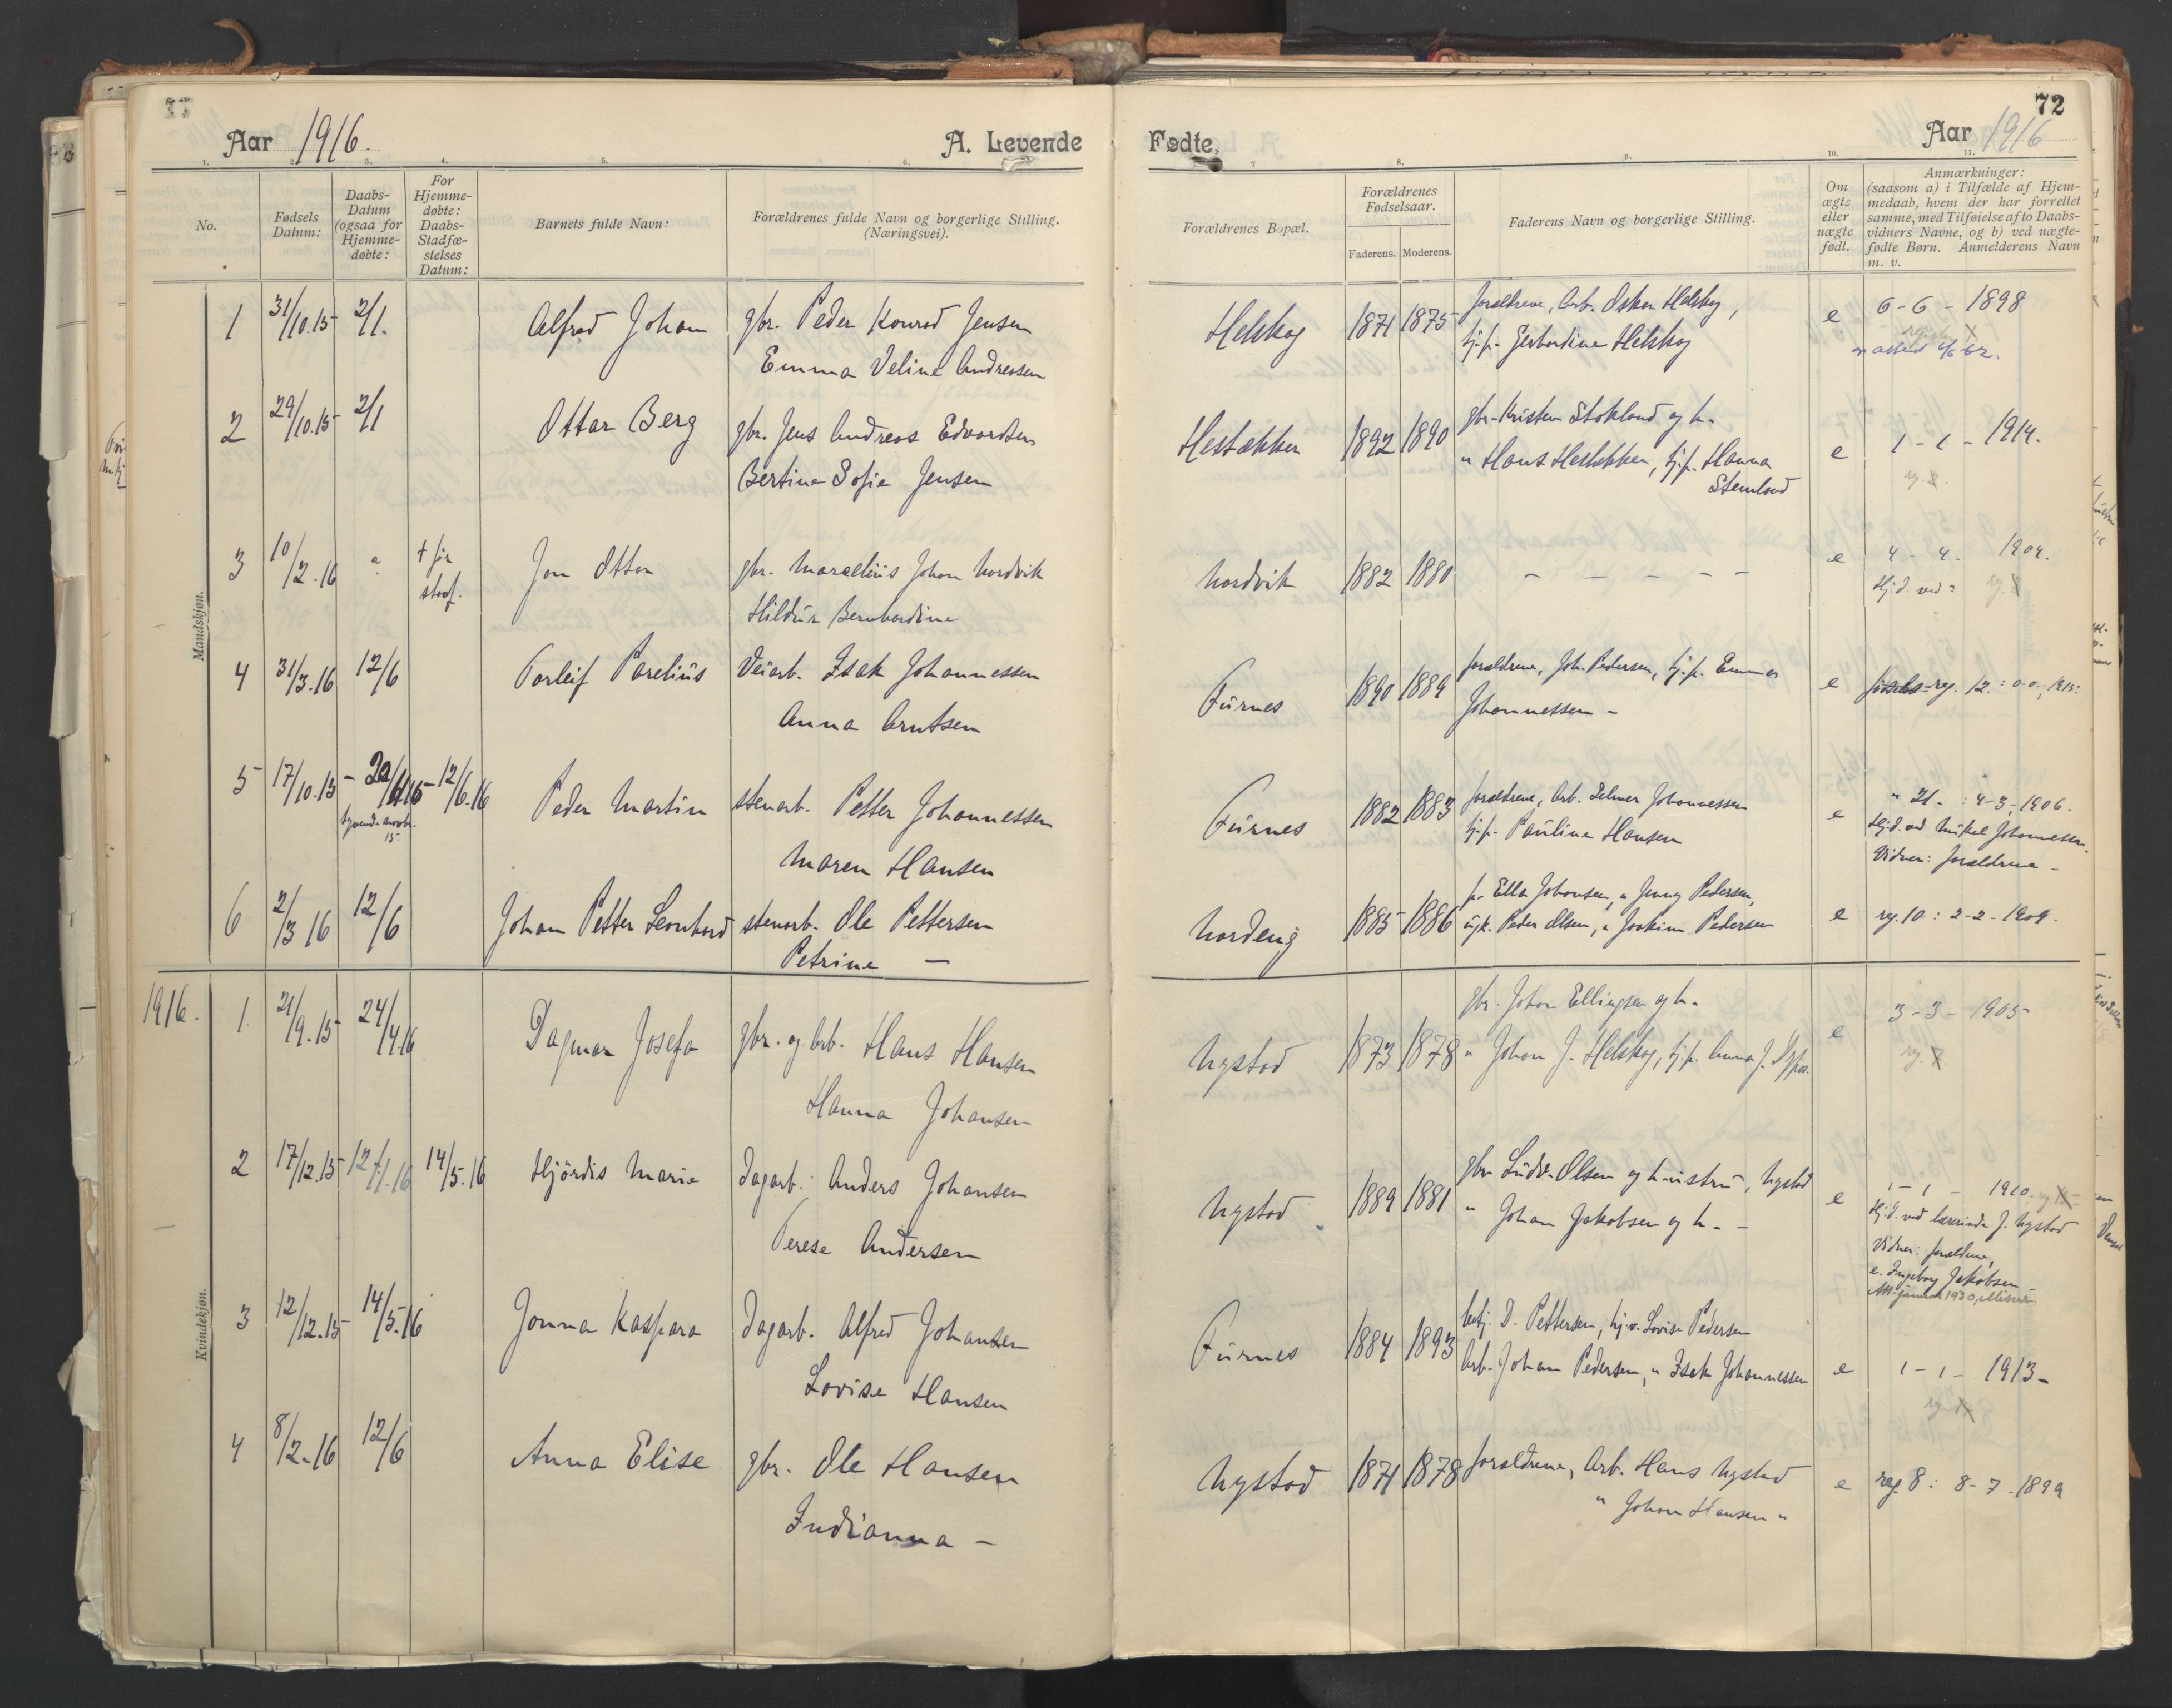 72
Aar 1916.
A. Levende
Fødte,
Aar 1916
1. 2. 3. 4. 5. 6. 7 8. 9. 10. 11.
No.
Fødsels Datum:
Daabs-Datum (ogsaa for Hjemme-døbte:
For Hjemme-døbte: Daabs-Stadfæ-stelses Datum:
Barnets fulde Navn:
Forældrenes fulde Navn og borgerlige Stilling. (Næringsvei).
Forældrenes Bopæl.
Forældrenes Fødselsaar.
Faderens. Moderens.
Faderens Navn og borgerlige Stilling.
Om ægte eller uægte født.
Anmærkninger:
(saasom a) i Tilfælde af Hjem-
medaab, hvem der har forrettet
samme, med Tilføielse af to Daabs-
vidners Navne, og b) ved uægte-
fødte Børn. Anmelderens Navn
m. v.
Mandskjøn.
1 31/10.15 2/1. Alfred Johan gbr. Peder Konrad Jensen Helskog 1871 1875 forældrene, Arb. Oskar Helskog, e 6-6-1898
Emma Veline Andreasen tj.p. Gerhardine Helskog
2 29/10.15 2/1 Ottar Berg gbr. Jens Andreas Edvardsen Hestækken 1892 1890 gbr. Kristen Stokland og h. e 1-1-1914.
Bertine Sofie Jensen " Hans Hestækken, tj.p. Hanna
Stemland
3 10/2.16 " + før stadf. Jon Otton gbr. Marselius Johan Nordvik Nordvik 1882 1880 - - - - - e 4-4. 1904.
Hildur Bernhardine Hj.d. ved "
4 31/3.16 12/6 Torleif Parelius Veiarb. Isak Johannessen Furnes 1890 1889 forældrene, Joh. Pedersen, tj.p. Emma e
Anna Arntsen Johannessen -
5 17/10.15 - 20/11.15 - 12/6.16 Peder Martin stenarb. Petter Johannessen Furnes 1882 1883 forældrene, Arb. Johannessen e " 21. : 4-3-1906.
tyvende novbr. 15 Maren Hansen tj.p. Pauline Hansen Hj.d. ved Mikal Johannessen.
Vidner: forældrene -
6 2/3 16 12/6 Johan Petter Leonhard stenarb. Ole Pettersen Nordeng 1885 1886 p. Ella Johansen, " Jenny Pedersen, e reg. 10 : 2-2-1909.
Petrine - ugk. Peder Olsen, " Joakim Pedersen
1916.
Kvindekjøn.
1 21/9.15 24/4.16 Dagmar Josefa gbr. og Arb. Hans Hansen Nystad 1873 1878 gbr. Johan Ellingsen og h. e 3-3-1905
Hanna Johansen " Johan J. Helskog, tj.p. Anna J.
2 17/12.15 12/1.16 14/5.16 Hjördis Marie Dagarb. Anders Johansen Nystad 1889 1881 gbr. Ludv. Olsen og hustru, Nystad e 1-1-1910
Terese Andersen " Johan Jakobsen og h. - Hj.d. ved lærerinde J. Nystad
Vidner: forældrene,
e. Ingeborg Jakobsen
3 12/12.15 14/5.16 Jonna Kaspara Dagarb. Alfred Johansen Furnes 1884 1893 betj. D. Pettersen, tj.p. Lovise Pedersen e 1-1-1913-
Lovise Hansen Arb. Johan Pedersen, " Isak Johannessen
4 8/2.16 12/6 Anna Elise gbr. Ole Hansen Nystad 1871 1878 forældrene, Arb. Hans Nystad e reg. 8: 8-7-1899
Indianna - " Johan Hansen "